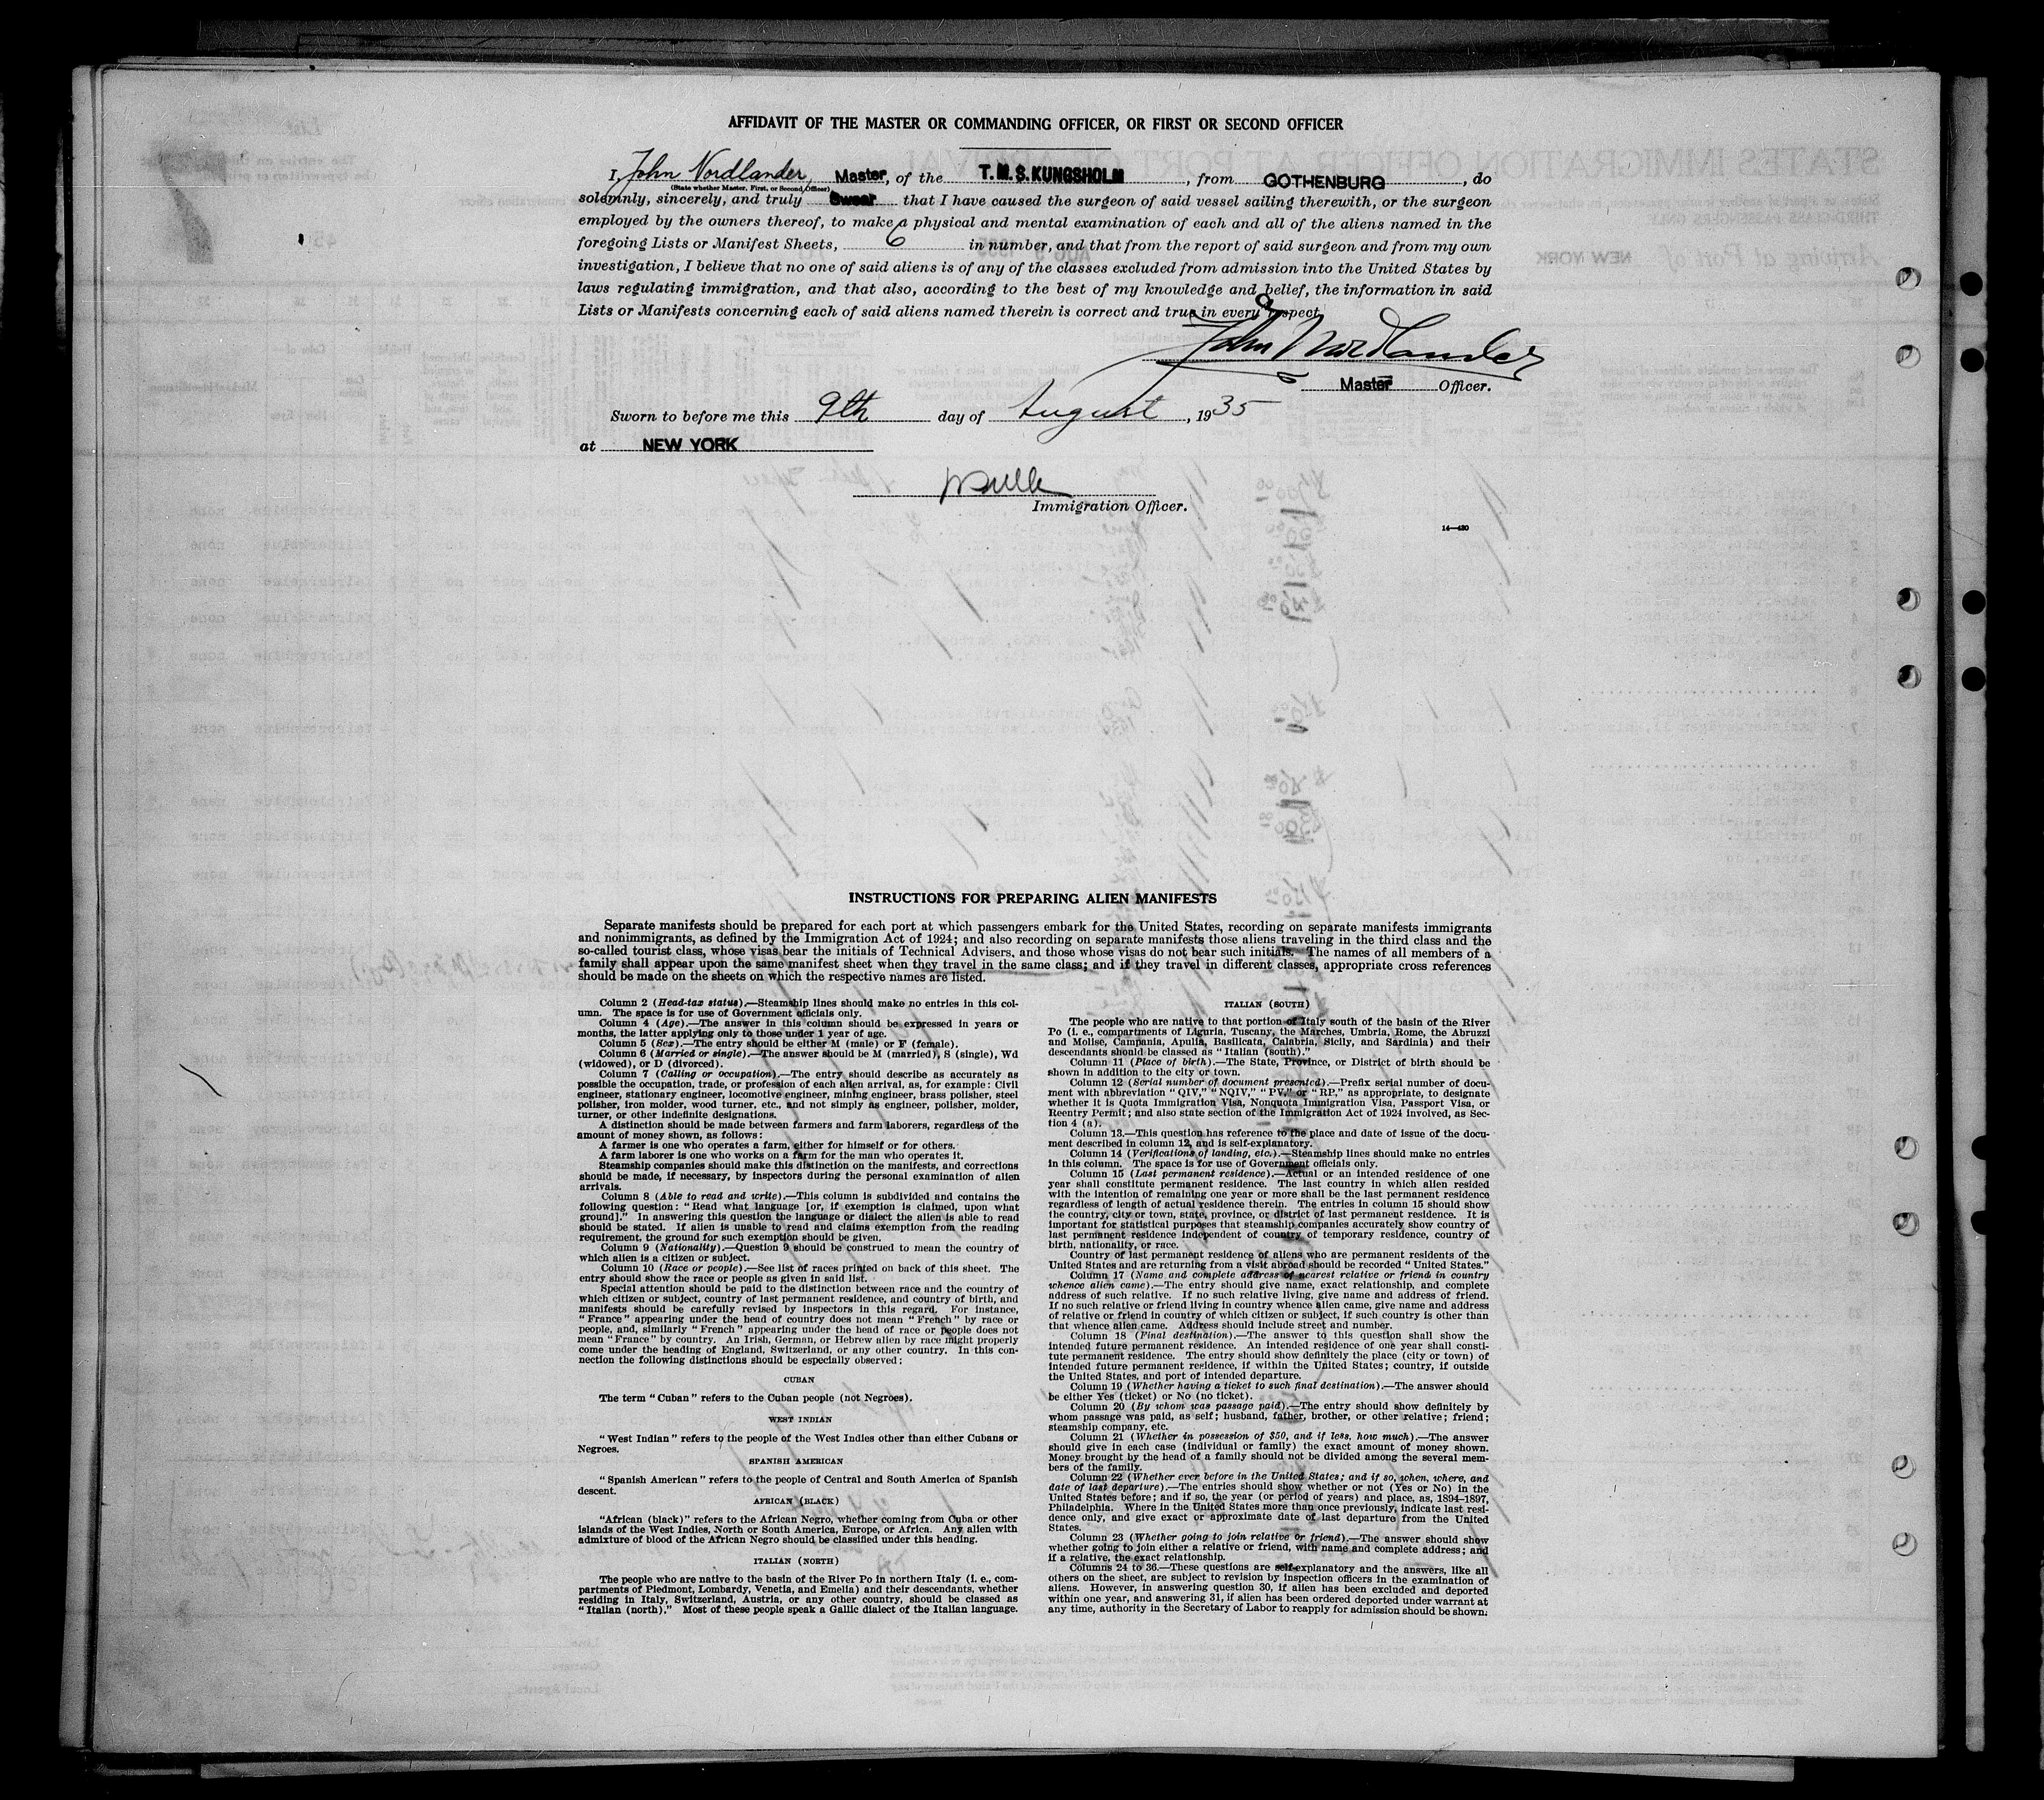 AFFIDAVIT OF THE MASTER OR COMMANDING OFFICER, OR FIRST OR SECOND OFFICER
I, John Nordlander, Master, of the T.M.S. KUNGSHOLM, from GOTHENBURG, do
(State whether Master, First, or Second Officer)
solemnly, sincerely, and truly Swear that I have caused the surgeon of said vessel sailing therewith, or the surgeon
employed by the owners thereof, to make a physical and mental examination of each and all of the aliens named in the
foregoing Lists or Manifest Sheets, 6 in number, and that from the report of said surgeon and from my own
investigation, I believe that no one of said aliens is of any of the classes excluded from admission into the United States by
laws regulating immigration, and that also, according to the best of my knowledge and belief, the information in said
Lists or Manifests concerning each of said aliens named therein is correct and true in every respect.
John Nordlander
Master Officer.
Sworn to before me this 9th day of August, 1935
at NEW YORK
Immigration Officer.
14—430
INSTRUCTIONS FOR PREPARING ALIEN MANIFESTS
Separate manifests should be prepared for each port at which passengers embark for the United States, recording on separate manifests immigrants
and nonimmigrants, as defined by the Immigration Act of 1924; and also recording on separate manifests those aliens traveling in the third class and the
so-called tourist class, whose visas bear the initials of Technical Advisers, and those whose visas do not bear such initials. The names of all members of a
family shall appear upon the same manifest sheet when they travel in the same class; and if they travel in different classes, appropriate cross references
should be made on the sheets on which the respective names are listed.
Column 2 (Head-tax status).—Steamship lines should make no entries in this col-
umn. The space is for use of Government officials only.
Column 4 (Age).—The answer in this column should be expressed in years or
months, the latter applying only to those under 1 year of age.
Column 5 (Sex).—The entry should be either M (male) or F (female).
Column 6 (Married or single).—The answer should be M (married), S (single), Wd
(widowed), or D (divorced).
Column 7 (Calling or occupation).—The entry should describe as accurately as
possible the occupation, trade, or profession of each alien arrival, as, for example: Civil
engineer, stationary engineer, locomotive engineer, mining engineer, brass polisher, steel
polisher, iron molder, wood turner, etc., and not simply as engineer, polisher, molder,
turner, or other indefinite designations.
A distinction should be made between farmers and farm laborers, regardless of the
amount of money shown, as follows:
A farmer is one who operates a farm, either for himself or for others.
A farm laborer is one who works on a farm for the man who operates it.
Steamship companies should make this distinction on the manifests, and corrections
should be made, if necessary, by inspectors during the personal examination of alien
arrivals.
Column 8 (Able to read and write).—This column is subdivided and contains the
following question: "Read what language [or, if exemption is claimed, upon what
ground]." In answering this question the language or dialect the alien is able to read
should be stated. If alien is unable to read and claims exemption from the reading
requirement, the ground for such exemption should be given.
Column 9 (Nationality).—Question 9 should be construed to mean the country of
which alien is a citizen or subject.
Column 10 (Race or people).—See list of races printed on back of this sheet. The
entry should show the race or people as given in said list.
Special attention should be paid to the distinction between race and the country of
which citizen or subject, country of last permanent residence, and country of birth, and
manifests should be carefully revised by inspectors in this regard. For instance,
"France" appearing under the head of country does not mean "French" by race or
people, and, similarly "French" appearing under the head of race or people does not
mean "France" by country. An Irish, German, or Hebrew alien by race might properly
come under the heading of England, Switzerland, or any other country. In this con-
nection the following distinctions should be especially observed:
CUBAN
The term "Cuban" refers to the Cuban people (not Negroes).
WEST INDIAN
"West Indian" refers to the people of the West Indies other than either Cubans or
Negroes.
SPANISH AMERICAN
"Spanish American" refers to the people of Central and South America of Spanish
descent.
AFRICAN (BLACK)
"African (black)" refers to the African Negro, whether coming from Cuba or other
islands of the West Indies, North or South America, Europe, or Africa. Any alien with
admixture of blood of the African Negro should be classified under this heading.
ITALIAN (NORTH)
The people who are native to the basin of the River Po in northern Italy (i. e., com-
partments of Piedmont, Lombardy, Venetia, and Emelia) and their descendants, whether
residing in Italy, Switzerland, Austria, or any other country, should be classed as
"Italian (north)." Most of these people speak a Gallic dialect of the Italian language.
ITALIAN (SOUTH)
The people who are native to that portion of Italy south of the basin of the River
Po (i. e., compartments of Liguria, Tuscany, the Marches, Umbria, Rome, the Abruzzi
and Molise, Campania, Apulia, Basilicata, Calabria, Sicily, and Sardinia) and their
descendants should be classed as "Italian (south)."
Column 11 (Place of birth).—The State, Province, or District of birth should be
shown in addition to the city or town.
Column 12 (Serial number of document presented).—Prefix serial number of docu-
ment with abbreviation "QIV," "NQIV," "PV," or "RP," as appropriate, to designate
whether it is Quota Immigration Visa, Nonquota Immigration Visa, Passport Visa, or
Reentry Permit; and also state section of the Immigration Act of 1924 involved, as Sec-
tion 4 (a).
Column 13.—This question has reference to the place and date of issue of the docu-
ment described in column 12, and is self-explanatory.
Column 14 (Verifications of landing, etc.).—Steamship lines should make no entries
in this column. The space is for use of Government officials only.
Column 15 (Last permanent residence).—Actual or an intended residence of one
year shall constitute permanent residence. The last country in which alien resided
with the intention of remaining one year or more shall be the last permanent residence
regardless of length of actual residence therein. The entries in column 15 should show
the country, city or town, state, province, or district of last permanent residence. It is
important for statistical purposes that steamship companies accurately show country of
last permanent residence independent of country of temporary residence, country of
birth, nationality, or race.
Country of last permanent residence of aliens who are permanent residents of the
United States and are returning from a visit abroad should be recorded "United States."
Column 17 (Name and complete address of nearest relative or friend in country
whence alien came).—The entry should give name, exact relationship, and complete
address of such relative. If no such relative living, give name and address of friend.
If no such relative or friend living in country whence alien came, give name and address
of relative or friend in country of which citizen or subject, if such country is other than
that whence alien came. Address should include street and number.
Column 18 (Final destination).—The answer to this question shall show the
intended future permanent residence. An intended residence of one year shall consti-
tute permanent residence. The entry should show definitely the place (city or town) of
intended future permanent residence, if within the United States; country, if outside
the United States, and port of intended departure.
Column 19 (Whether having a ticket to such final destination).—The answer should
be either Yes (ticket) or No (no ticket).
Column 20 (By whom was passage paid).—The entry should show definitely by
whom passage was paid, as self; husband, father, brother, or other relative; friend;
steamship company, etc.
Column 21 (Whether in possession of $50, and if less, how much).—The answer
should give in each case (individual or family) the exact amount of money shown.
Money brought by the head of a family should not be divided among the several mem-
bers of the family.
Column 22 (Whether ever before in the United States; and if so, when, where, and
date of last departure).—The entries should show whether or not (Yes or No) in the
United States before; and if so, the year (or period of years) and place, as, 1894–1897,
Philadelphia. Where in the United States more than once previously, indicate last resi-
dence only, and give exact or approximate date of last departure from the United
States.
Column 23 (Whether going to join relative or friend).—The answer should show
whether going to join either a relative or friend, with name and complete address; and
if a relative, the exact relationship.
Columns 24 to 36.—These questions are self-explanatory and the answers, like all
others on the sheet, are subject to revision by inspection officers in the examination of
aliens. However, in answering question 30, if alien has been excluded and deported
within one year, and answering 31, if alien has been ordered deported under warrant at
any time, authority in the Secretary of Labor to reapply for admission should be shown.